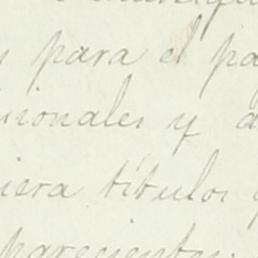 para el pa
sionales y a
iera títulos
parecientes.